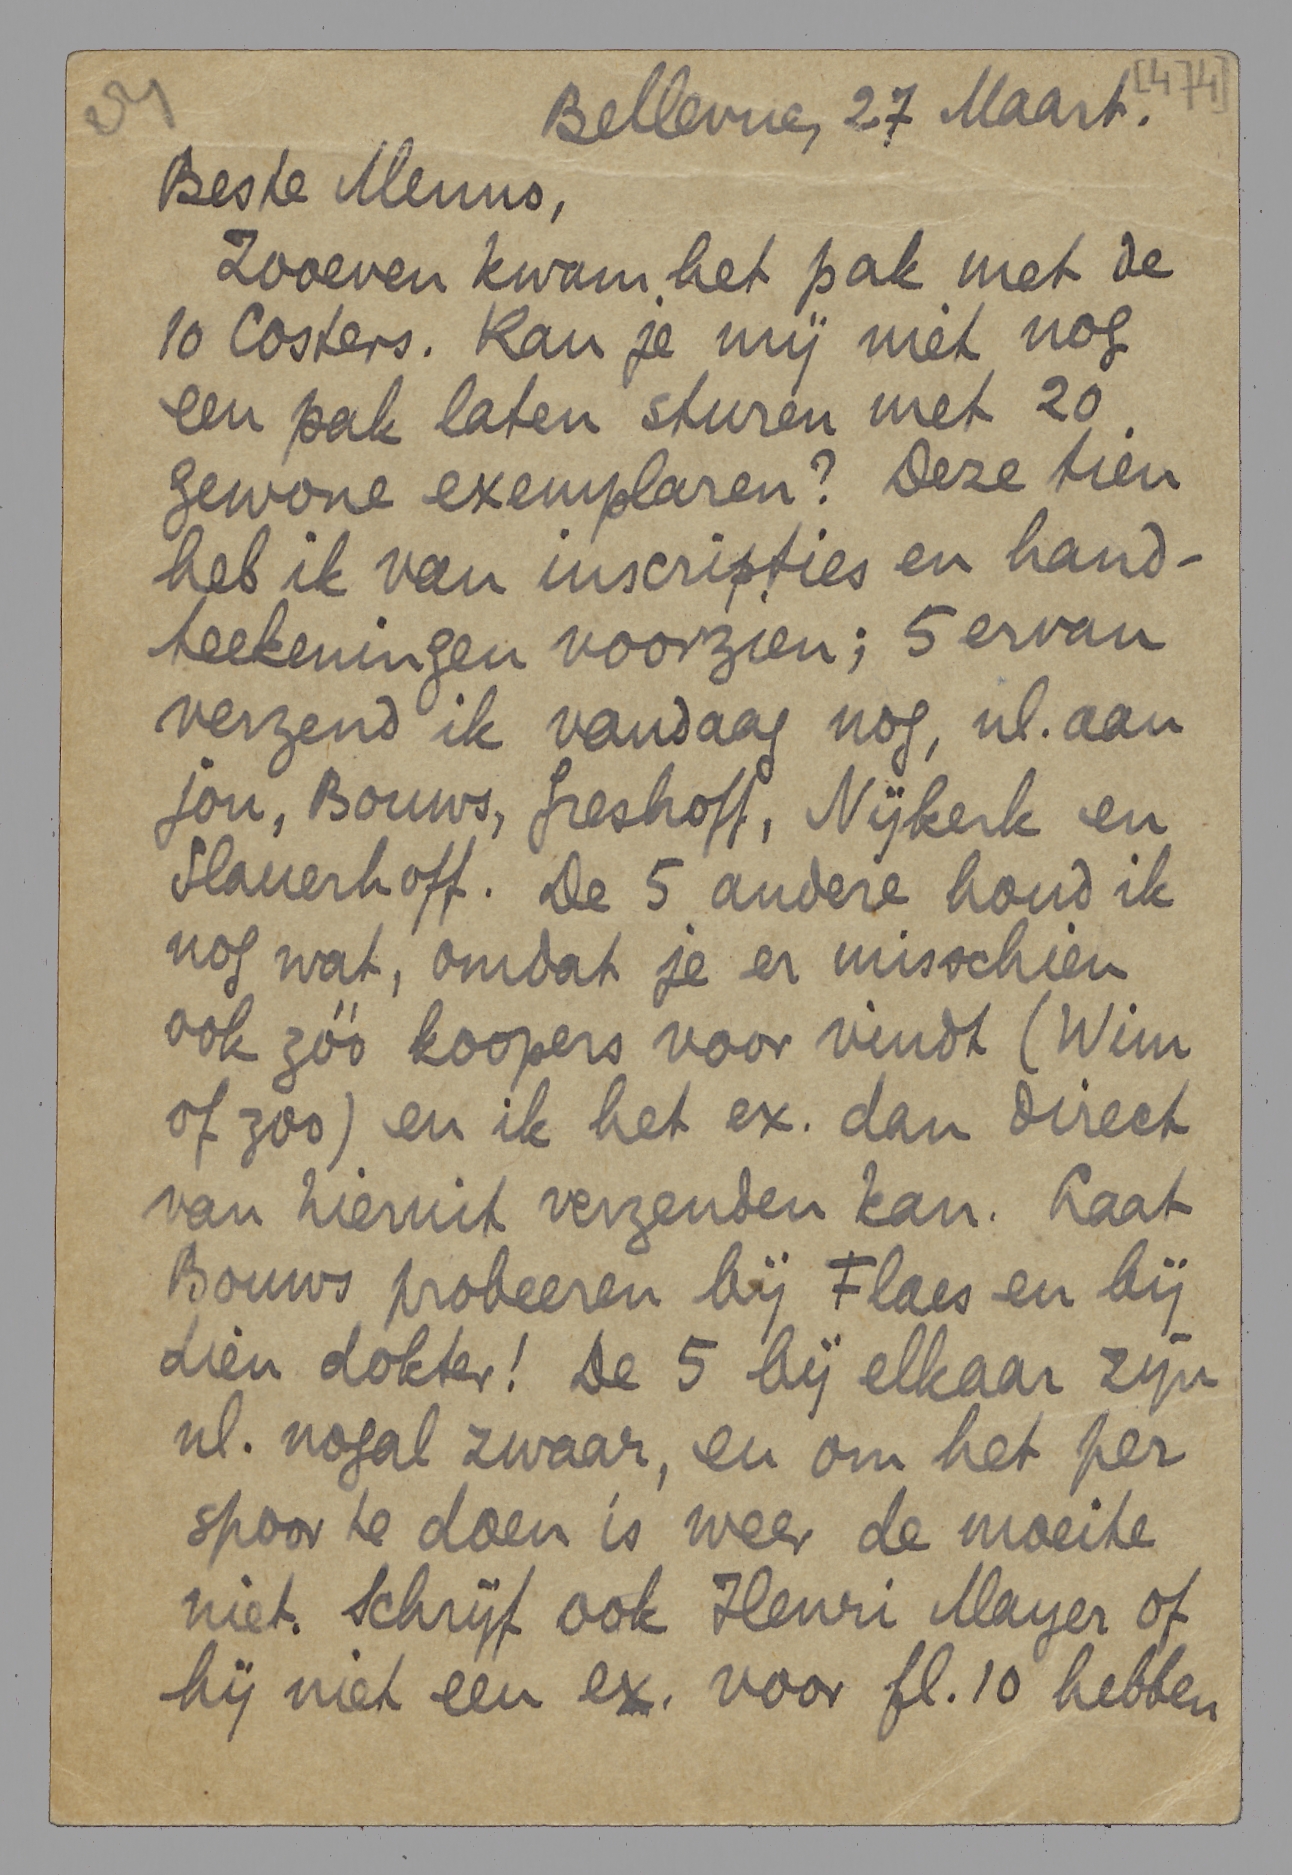 [474]
Bellevue, 27 Maart.
Beste Menno,
Zooeven kwam het pak met de
10 Costers. Kan je mij niet nog
een pak laten sturen met 20
gewone exemplaren? Deze tien
heb ik van inscripties en hand-
teekeningen voorzien; 5 ervan
verzend ik vandaag nog, nl. aan
jou, Bouws, Greshoff, Nijkerk en
Slauerhoff. De 5 andere houd ik
nog wat, omdat je er misschien
ook zóó koopers voor vindt (Wim
of zoo) en ik het ex. dan direct
van hieruit verzenden kan. Laat
Bouws probeeren bij Flaes en bij
dien dokter! De 5 bij elkaar zijn
nl. nogal zwaar, en om het per
spoor te doen is weer de moeite
niet. Schrijf ook Henri Mayer of
hij niet een ex. voor fl. 10 hebben